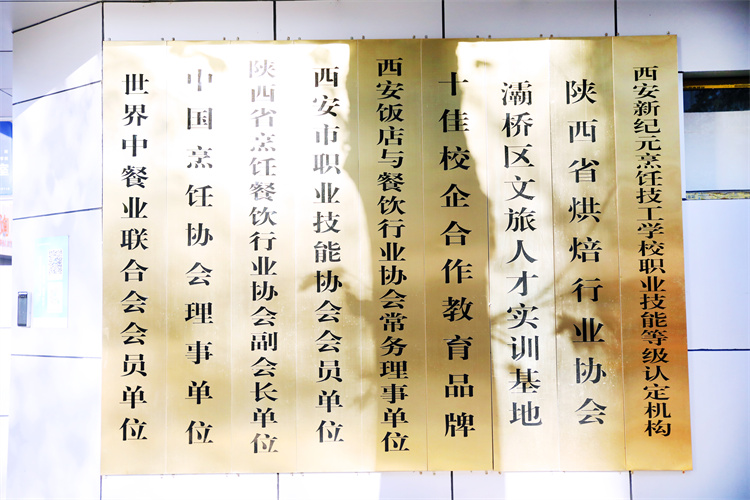 世界中餐业联合会会员单位
中国烹饪协会理事单位
陕西省烹饪餐饮行业协会副会长单位
西安市职业技能协会会员单位
西安饭店与餐饮行业协会常务理事单位
十佳校企合作教育品牌
灞桥区文旅人才实训基地
陕西省烘焙行业协会
西安新纪元烹饪技工学校职业技能等级认定机构